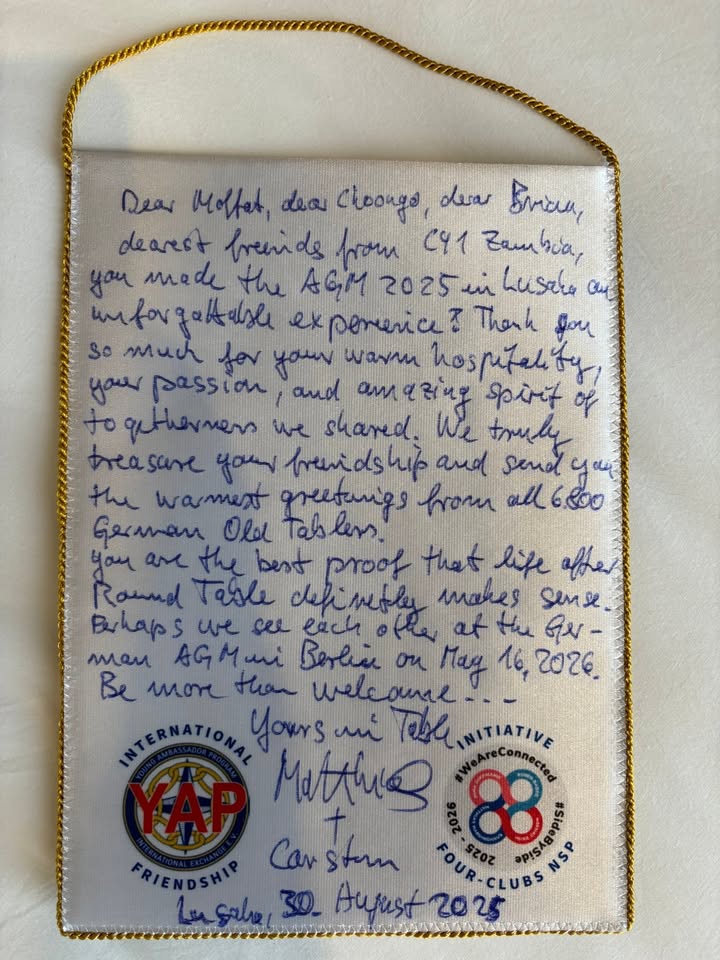 Dear Moffat, dear Choongo, dear Brian,
dearest freinds from C41 Zambia,
you made the AGM 2025 in Lusaka an
unforgattable experience! Thank you
so much for your warm hospitality,
your passion, and amazing spirit of
togetherness we shared. We truly
treasure your freindship and send you
the warmest greetings from all 6.800
German Old Tablers.
you are the best proof that life after
Round Table definetly makes sense.
Perhaps we see each other at the Ger-
man AGM in Berlin on May 16, 2026.
Be more than welcome---
Yours in Table
Matthias
+
Carsten
Lusaka, 30. August 2025
INTERNATIONAL
YOUNG AMBASSADOR PROGRAM
YAP
INTERNATIONAL EXCHANGE E.V.
FRIENDSHIP
INITIATIVE
#WeAreConnected
#SideBySide
2025 - 2026
FOUR-CLUBS NSP